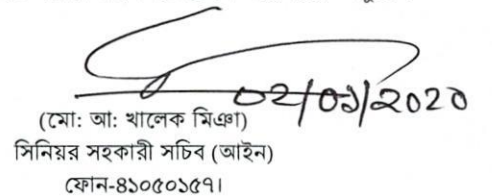 ০২/০১/২০২০
(মো: আ: খালেক মিঞা)
সিনিয়র সহকারী সচিব (আইন)
ফোন-৪১০৫০১৫৭।